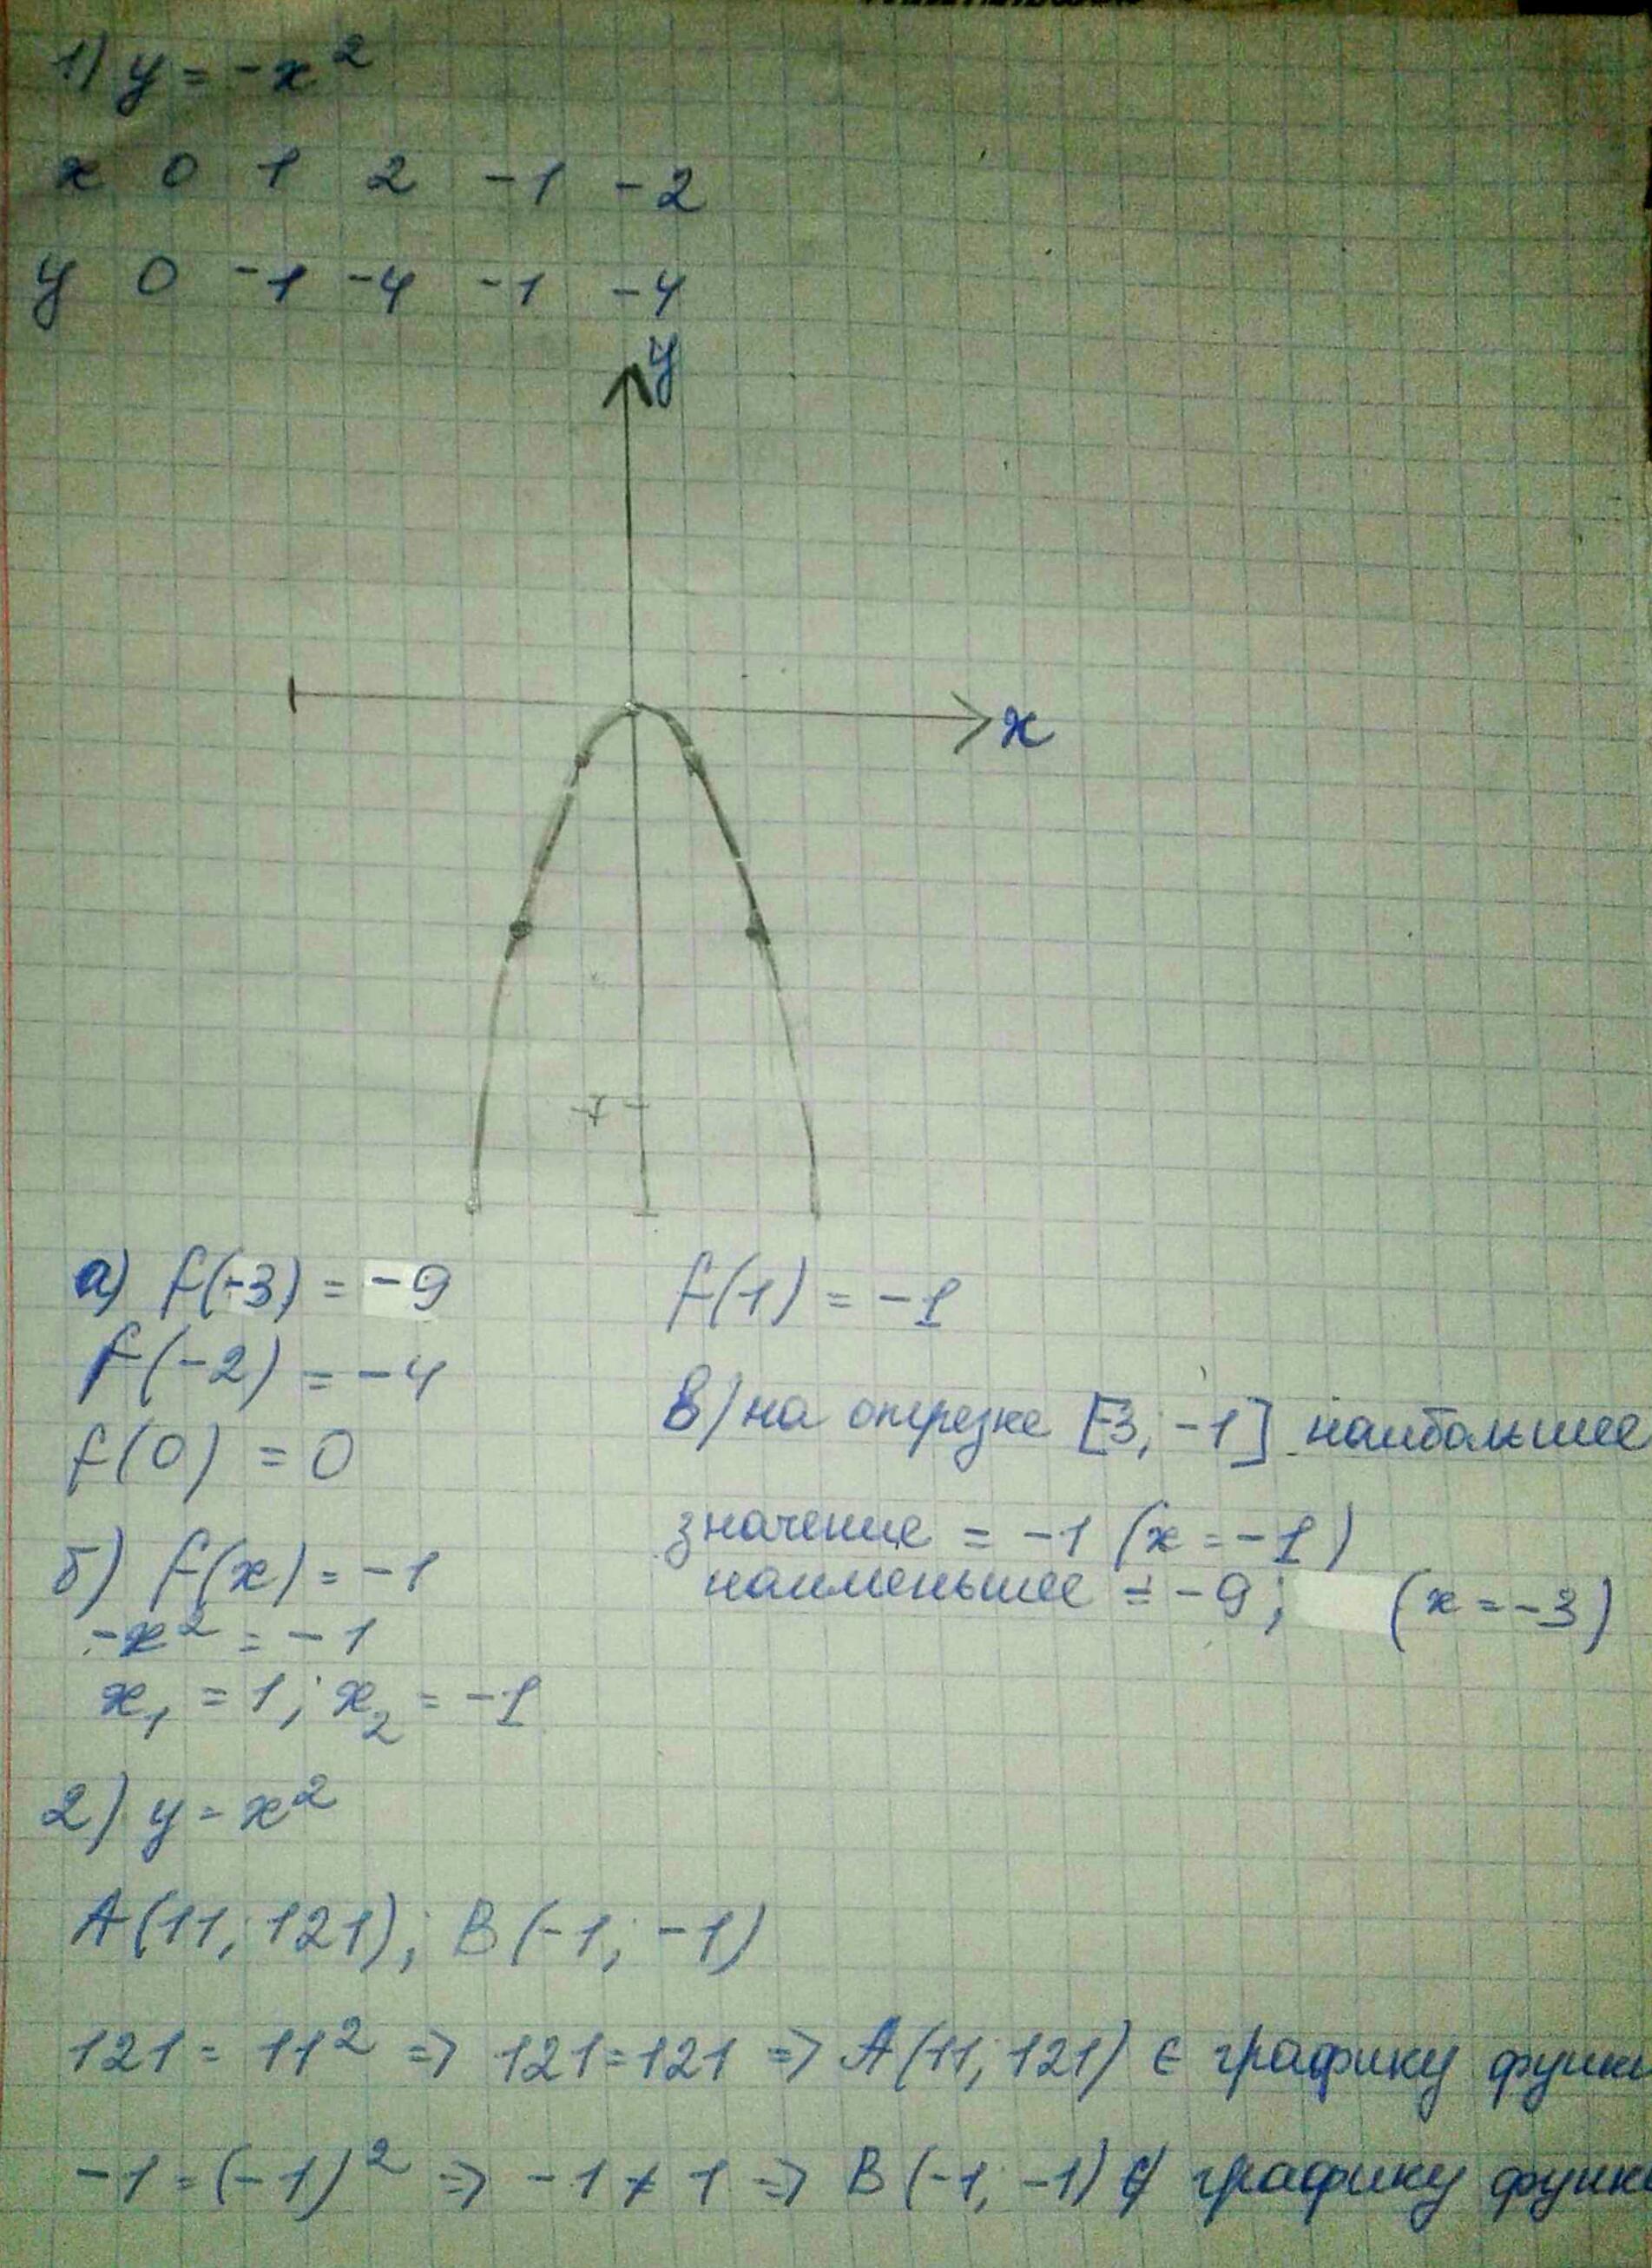 1) y = -x²
x 0 1 2 -1 -2
y 0 -1 -4 -1 -4
y
x
-7
а) f(-3) = -9
f(-2) = -4
f(0) = 0
б) f(x) = -1
-x² = -1
x₁ = 1; x₂ = -1
f(1) = -1
в) на отрезке [-3; -1] наибольшее
значение = -1 (x = -1)
наименьшее = -9; (x = -3)
2) y = x²
A(11; 121); B(-1; -1)
121 = 11² => 121 = 121 => A(11; 121) ∈ графику функ
-1 = (-1)² => -1 ≠ 1 => B(-1; -1) ∉ графику функ